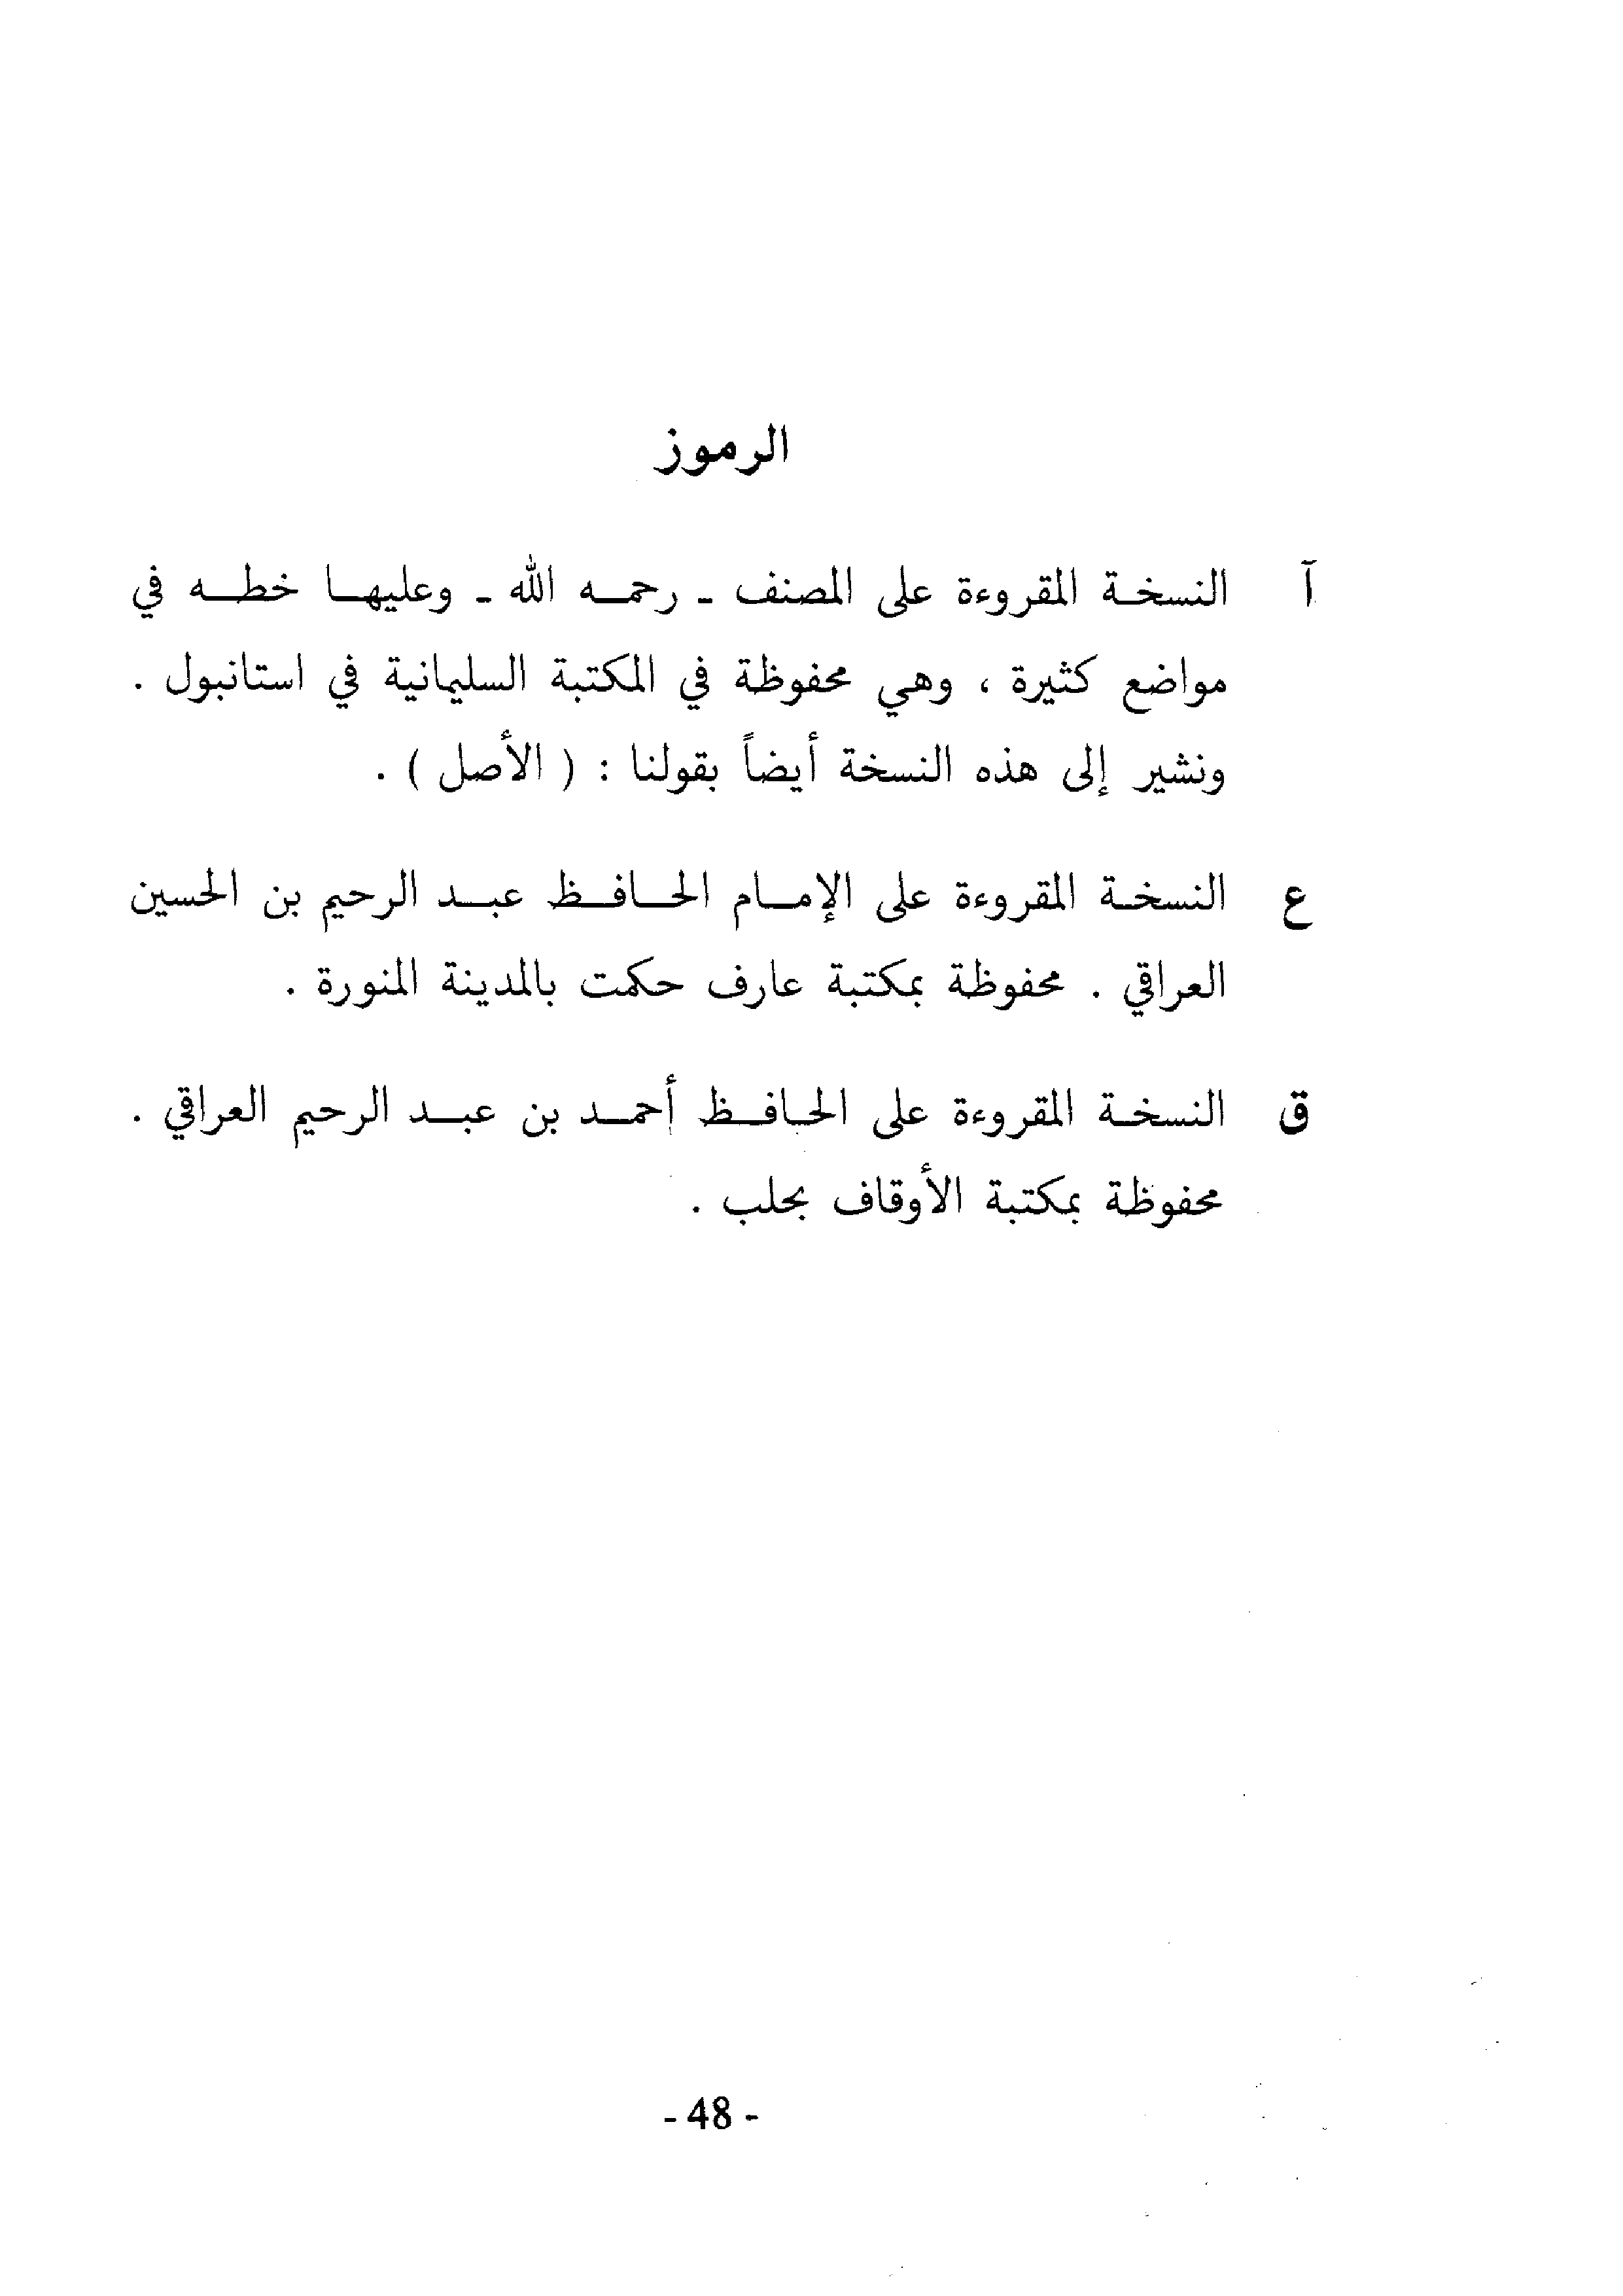 الرموز
آ النسخة المقروءة على المصنف ـ رحمه الله ـ وعليها خطه في
مواضع كثيرة ، وهي محفوظة في المكتبة السليمانية في استانبول .
ونشير إلى هذه النسخة أيضاً بقولنا : ( الأصل ) .
ع النسخة المقروءة على الإمام الحافظ عبد الرحيم بن الحسين
العراقي . محفوظة بمكتبة عارف حكمت بالمدينة المنورة .
ق النسخة المقروءة على الحافظ أحمد بن عبد الرحيم العراقي .
محفوظة بمكتبة الأوقاف بحلب .
- 48 -